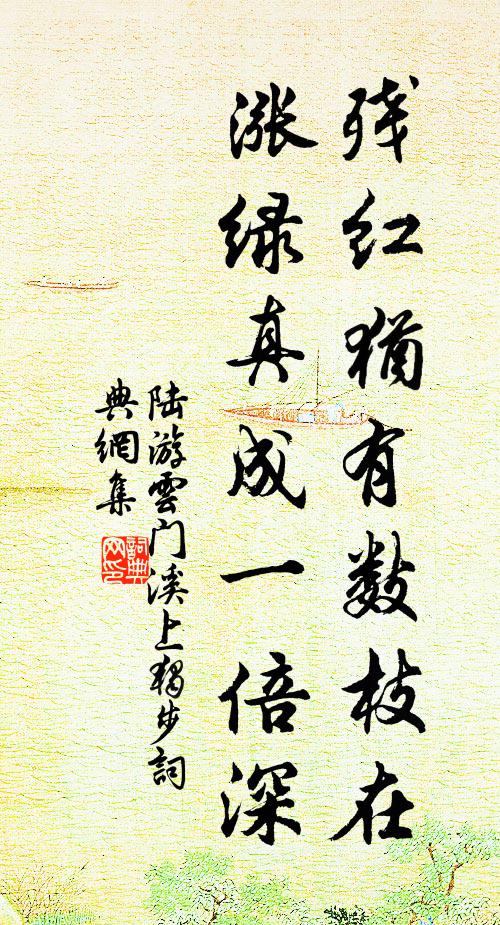 残红猶有数枝在
漲绿真成一倍深
陆游雲门溪上獨步詞
典網集
詞典网印